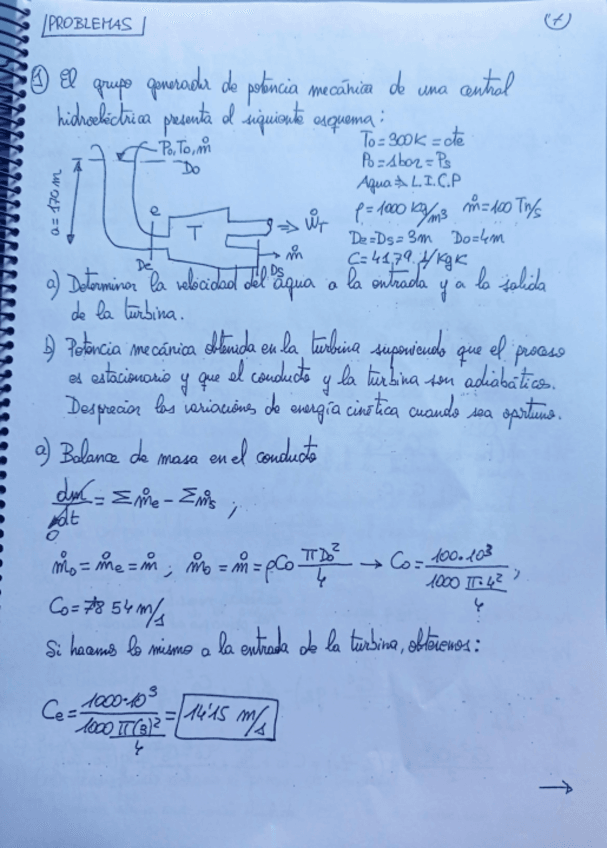 PROBLEMAS
(7)
① El grupo generador de potencia mecánica de una central
hidroeléctrica presenta el siguiente esquema:
Po, To, ṁ
Do
a = 170 m
e
T
De
s
Ds
⇒ Ẇr
ṁ
To = 300K = cte
Po = 1bar = Ps
Agua ⇒ L.I.C.P
ρ = 1000 kg/m³ ṁ = 100 Tn/s
De = Ds = 3m Do = 4m
C = 4179 J/kgK
a) Determinar la velocidad del agua a la entrada y a la salida
de la turbina.
b) Potencia mecánica obtenida en la turbina suponiendo que el proceso
es estacionario y que el conducto y la turbina son adiabáticos.
Despreciar las variaciones de energía cinética cuando sea oportuno.
a) Balance de masa en el conducto
dm/dt = Σṁe - Σṁs ;
0
ṁo = ṁe = ṁ ; ṁo = ṁ = ρCo πDo²/4 → Co = 100·10³/(1000 π·4²/4) ;
Co = 7'8 54 m/s
Si hacemos lo mismo a la entrada de la turbina, obtenemos:
Ce = 1000·10³/(1000 π(3)²/4) = 14'15 m/s
→